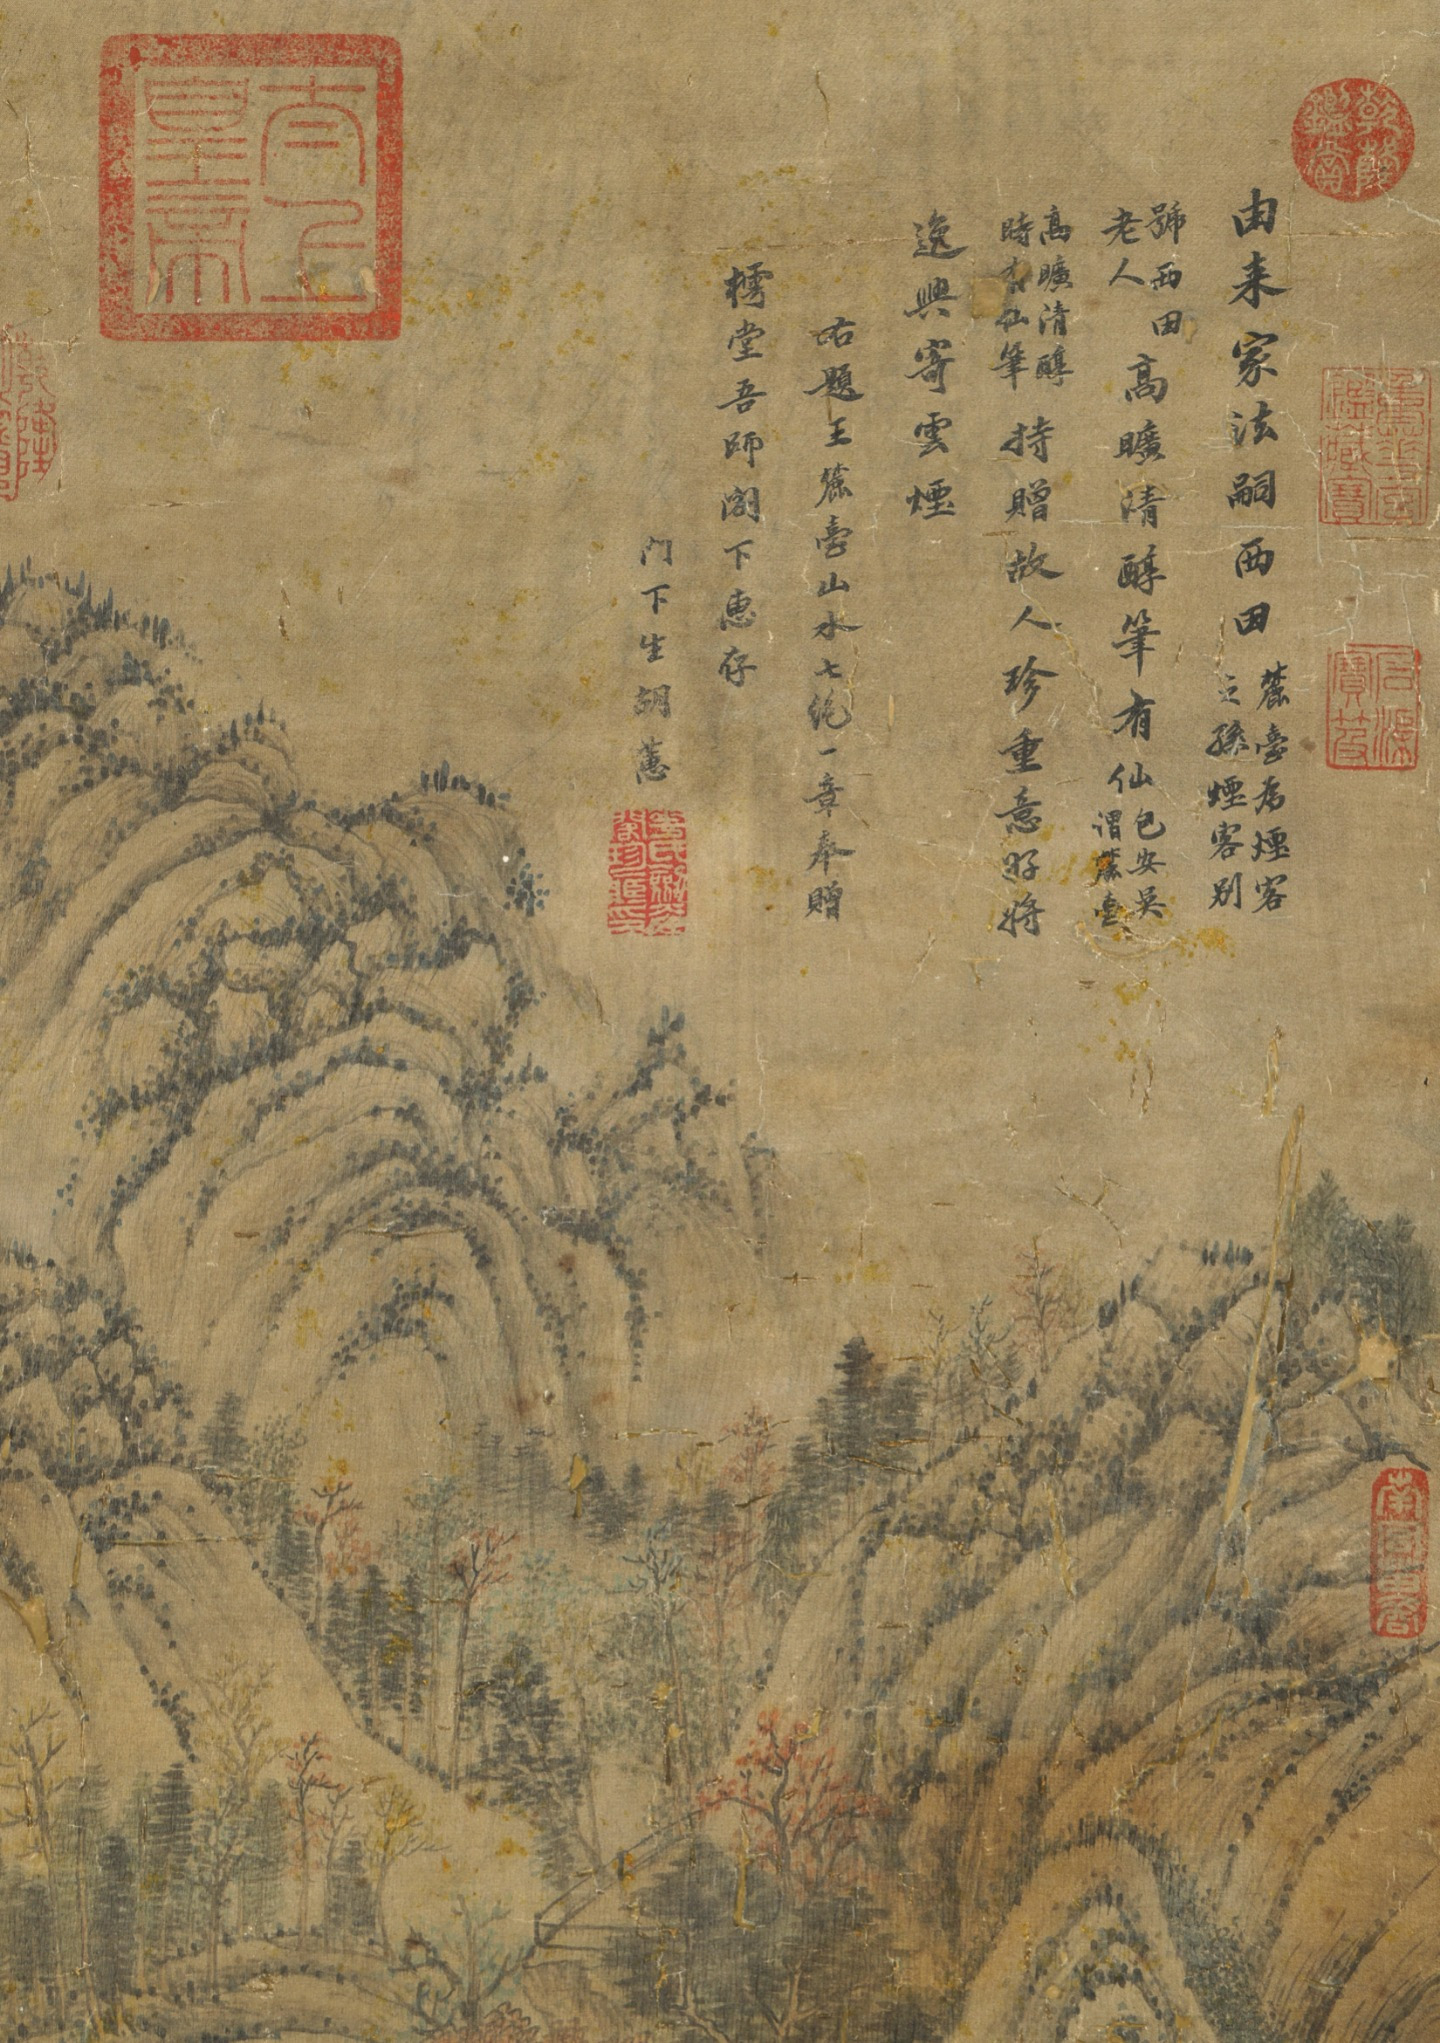 由来家法嗣西田麓臺為煙客
之孫煙客別
號西田
老人高曠清醇筆有仙包安吳
謂麓臺
高曠清醇
時有仙筆持贈故人珍重意好將
逸興寄雲煙
右題王麓臺山水七絶一章奉贈
樗堂吾師閣下惠存
門下生胡蕙
太上
皇帝
乾隆
鑑賞